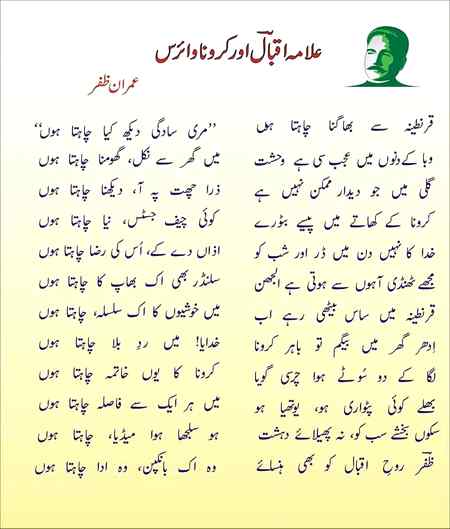 علامہ اقبالؒ اور کرونا وائرس
عمران ظفر
قرنطینہ سے بھاگنا چاہتا ہوں ”مری سادگی دیکھ کیا چاہتا ہوں“
وبا کے دنوں میں عجب سی ہے وحشت میں گھر سے نکل، گھومنا چاہتا ہوں
گلی میں جو دیدار ممکن نہیں ہے ذرا چھت پہ آ، دیکھنا چاہتا ہوں
کرونا کے کھاتے میں پیسے بٹورے کوئی چیف جسٹس، نیا چاہتا ہوں
خدا کا نہیں دن میں ڈر اور شب کو اذاں دے کے، اُس کی رضا چاہتا ہوں
مجھے ٹھنڈی آہوں سے ہوتی ہے الجھن سلنڈر بھی اک بھاپ کا چاہتا ہوں
قرنطینہ میں ساس بیٹھی رہے اب میں خوشیوں کا اک سلسلہ، چاہتا ہوں
اِدھر گھر میں بیگم تو باہر کرونا خدایا! میں ردِ بلا چاہتا ہوں
لگا کے دو سُوٹے ہوا چرسی گویا کرونا کا یوں خاتمہ چاہتا ہوں
بھلے کوئی پٹواری ہو، یوتھیا ہو میں ہر ایک سے فاصلہ چاہتا ہوں
سکوں بخشے سب کو، نہ پھیلائے دہشت ہو سلجھا ہوا میڈیا، چاہتا ہوں
ظفرؔ روحِ اقبال کو بھی ہنسائے وہ اک بانکپن، وہ ادا چاہتا ہوں